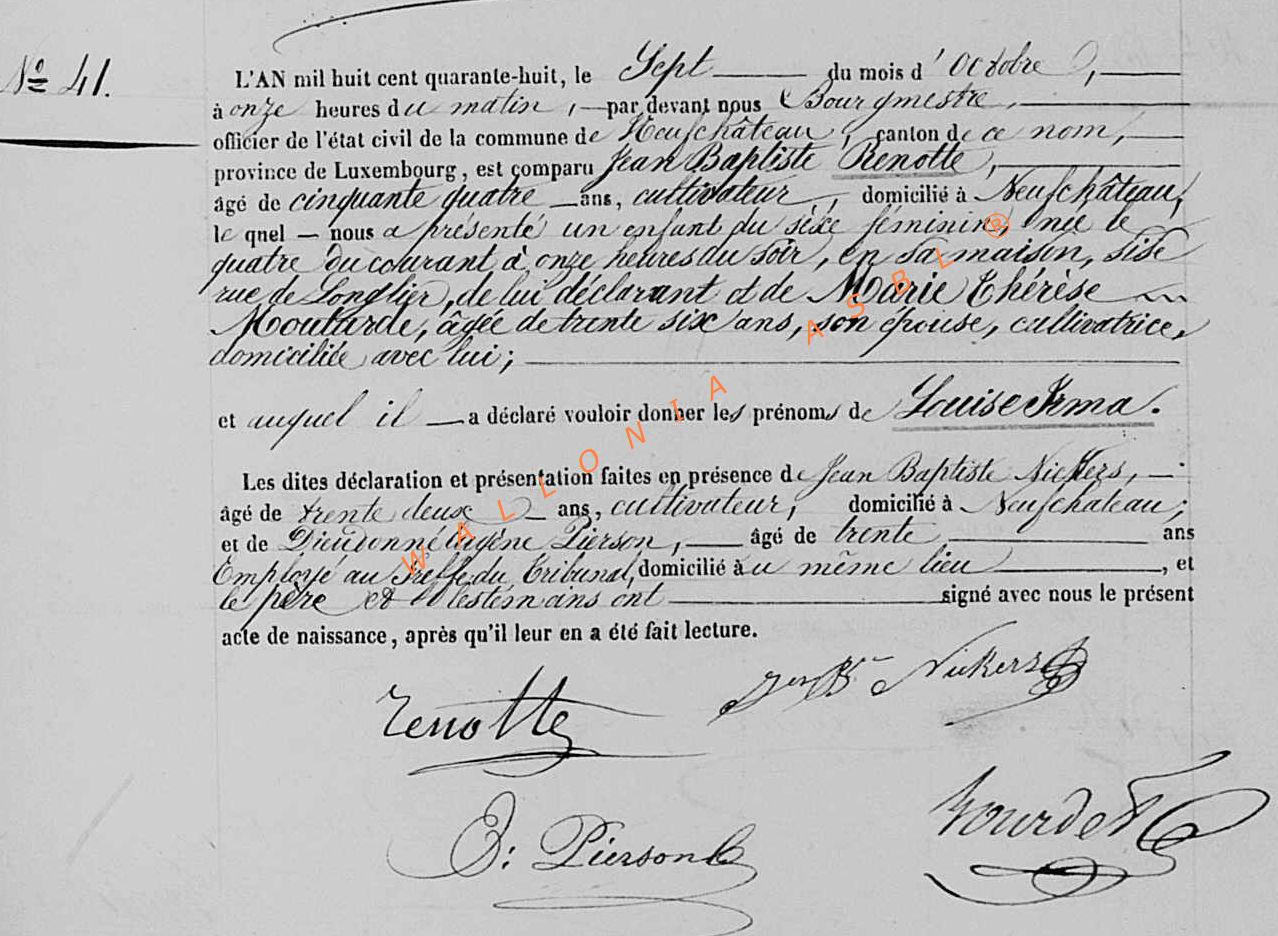 Nº 41.
L'AN mil huit cent quarante-huit, le Sept du mois d'Octobre,
à onze heures du matin, par devant nous Bourgmestre,
officier de l'état civil de la commune de Neufchâteau, canton de ce nom,
province de Luxembourg, est comparu Jean Baptiste Renotte,
âgé de cinquante quatre ans, cultivateur, domicilié à Neufchâteau,
le quel nous a présenté un enfant du sèxe féminin, née le
quatre du courant à onze heures du soir, en sa maison, sise
rue de Longlier, de lui déclarant et de Marie Thérèse
Moutarde, âgée de trente six ans, son épouse, cultivatrice,
domiciliée avec lui;
et auquel il a déclaré vouloir donner les prénoms de Louise Irma.
Les dites déclaration et présentation faites en présence de Jean Baptiste Nickers,
âgé de trente deux ans, cultivateur, domicilié à Neufchateau;
et de Dieudonné Eugène Pierson, âgé de trente ans
Employé au Greffe du Tribunal, domicilié au même lieu, et
le père et les témoins ont signé avec nous le présent
acte de naissance, après qu'il leur en a été fait lecture.
Jean Bte Nickers
renotte
Pierson
Bourdet
WALLONIA ASBL ®